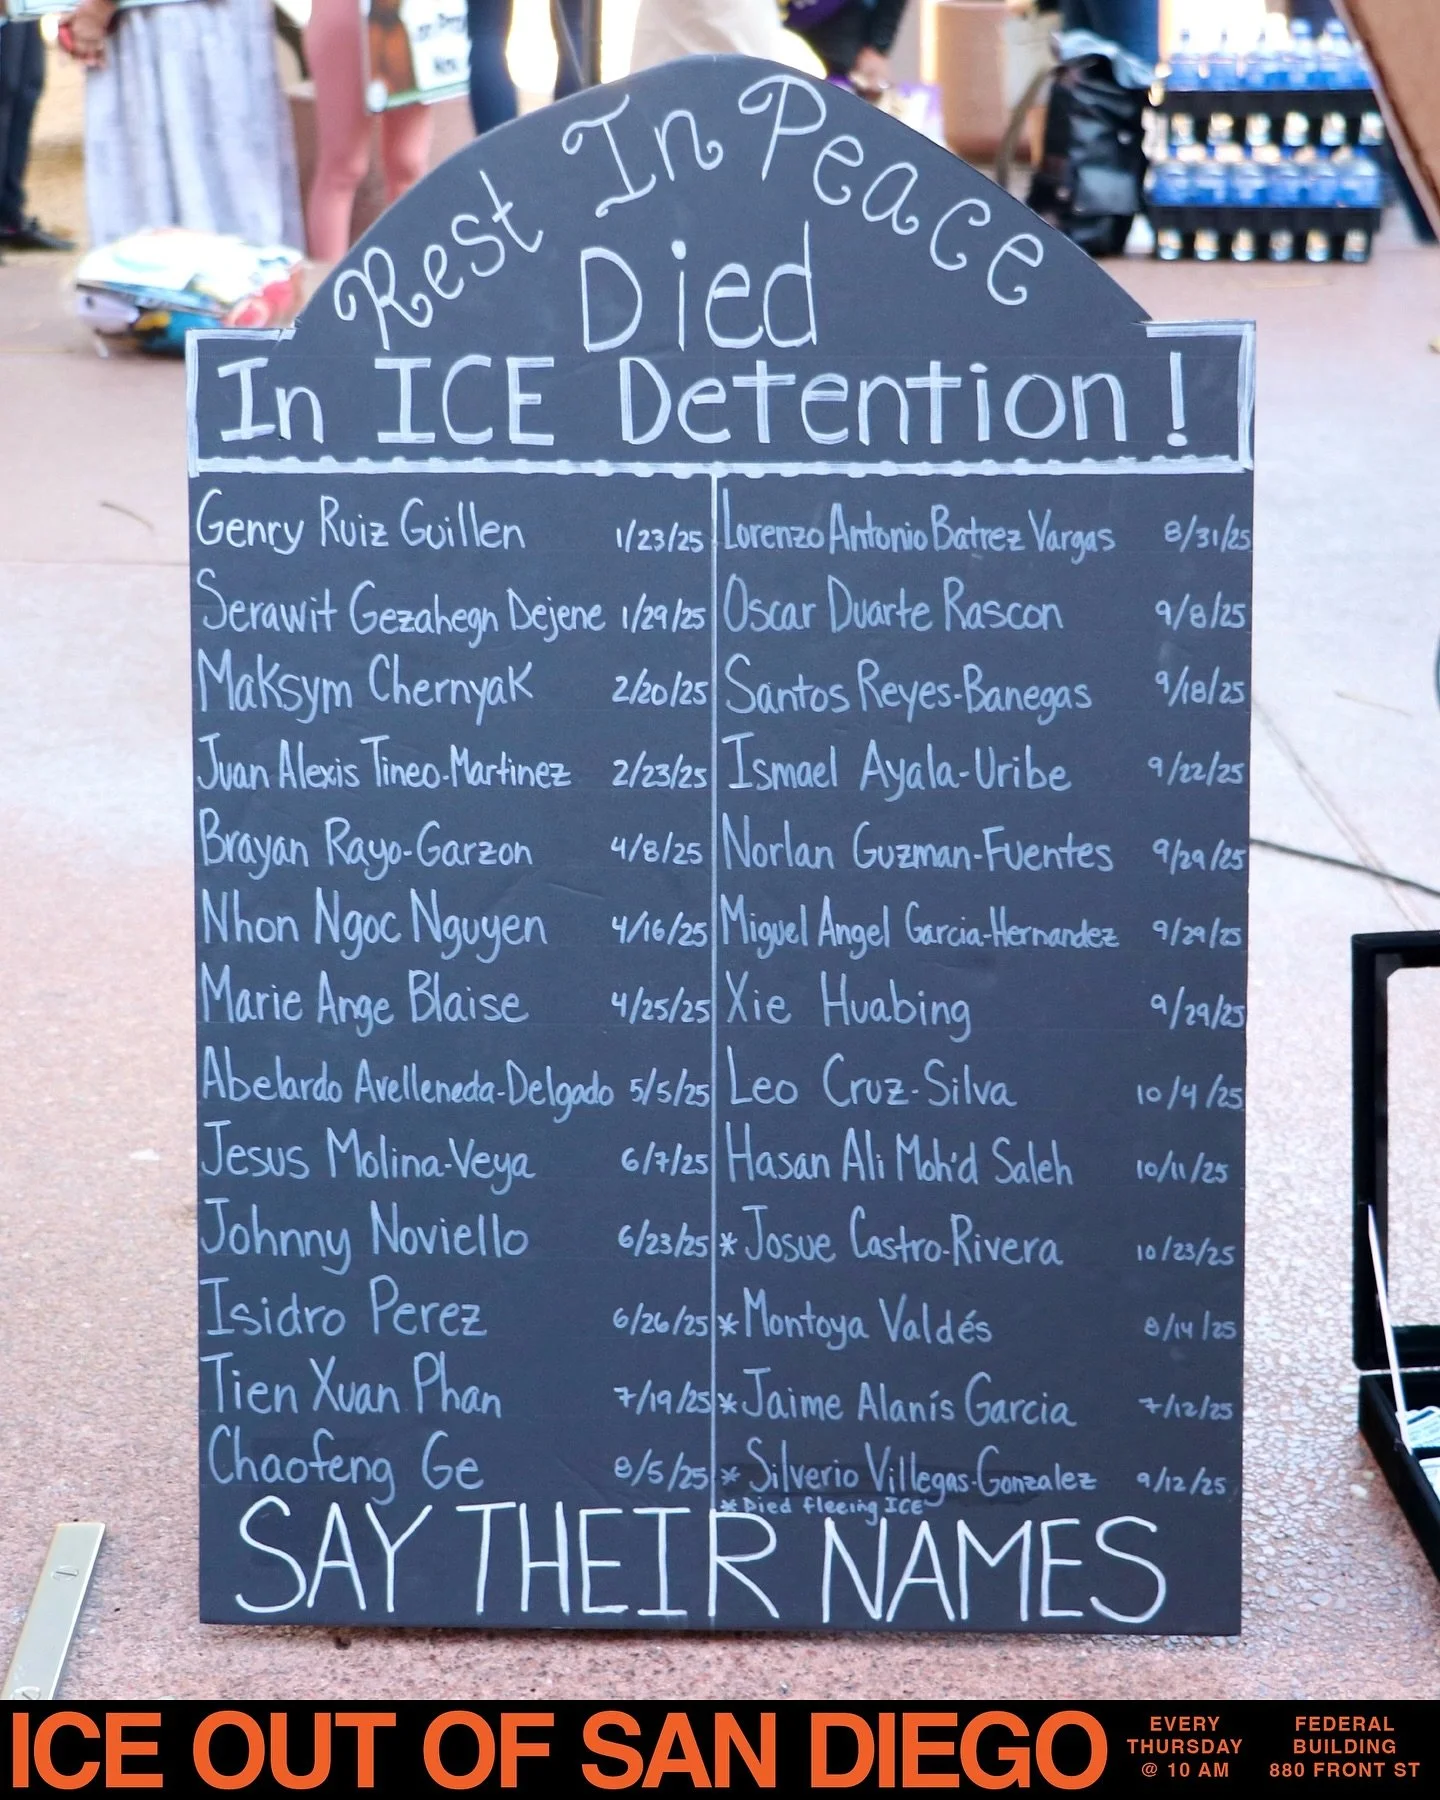 Rest In Peace
Died
In ICE Detention!
Genry Ruiz Guillen 1/23/25
Serawit Gezahegn Dejene 1/29/25
Maksym Chernyak 2/20/25
Juan Alexis Tineo-Martinez 2/23/25
Brayan Rayo-Garzon 4/8/25
Nhon Ngoc Nguyen 4/16/25
Marie Ange Blaise 4/25/25
Abelardo Avelleneda-Delgado 5/5/25
Jesus Molina-Veya 6/7/25
Johnny Noviello 6/23/25
Isidro Perez 6/26/25
Tien Xuan Phan 7/19/25
Chaofeng Ge 8/5/25
Lorenzo Antonio Batrez Vargas 8/31/25
Oscar Duarte Rascon 9/8/25
Santos Reyes-Banegas 9/18/25
Ismael Ayala-Uribe 9/22/25
Norlan Guzman-Fuentes 9/29/25
Miguel Angel Garcia-Hernandez 9/29/25
Xie Huabing 9/29/25
Leo Cruz-Silva 10/4/25
Hasan Ali Moh'd Saleh 10/11/25
*Josue Castro-Rivera 10/23/25
*Montoya Valdés 8/14/25
*Jaime Alanís Garcia 7/12/25
* Silverio Villegas-Gonzalez 9/12/25
*Died fleeing ICE
SAY THEIR NAMES
ICE OUT OF SAN DIEGO
EVERY
THURSDAY
@ 10 AM
FEDERAL
BUILDING
880 FRONT ST